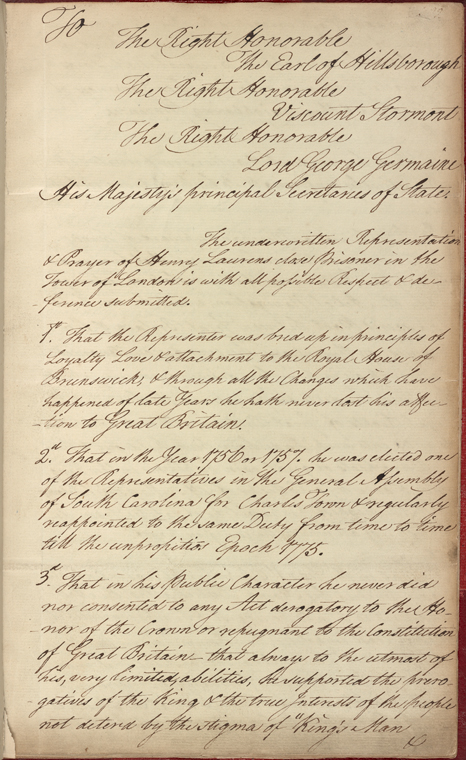 To
The Right Honorable
The Earl of Hillsborough
The Right Honorable
Viscount Stormont
The Right Honorable
Lord George Germaine
His Majesty's principal Secretaries of State.
The underwritten Representation
& Prayer of Henry Laurens close Prisoner in the
Tower of London is with all possible Respect & de-
-ference submitted.
1st. That the Representer was bred up in principles of
Loyalty Love & attachment to the Royal House of
Brunswick, & through all the Changes which have
happened of late Years he hath never lost his affec-
-tion to Great Britain.
2d. That in the Year 1756 or 1757. he was elected one
of the Representatives in the General Assembly
of South Carolina for Charles Town & regularly
reappointed to the same Duty from time to time
till the unpropitios Epoch 1775.
3d. That in his Public Character he never did
nor consented to any Act derogatory to the Ho-
-nor of the Crown or repugnant to the Constitution
of Great Britain—that always to the utmost of
his, very limited, abelities, he supported the prero-
-gatives of the King & the true Interests of the people
not deterd by the stigma of "King's Man